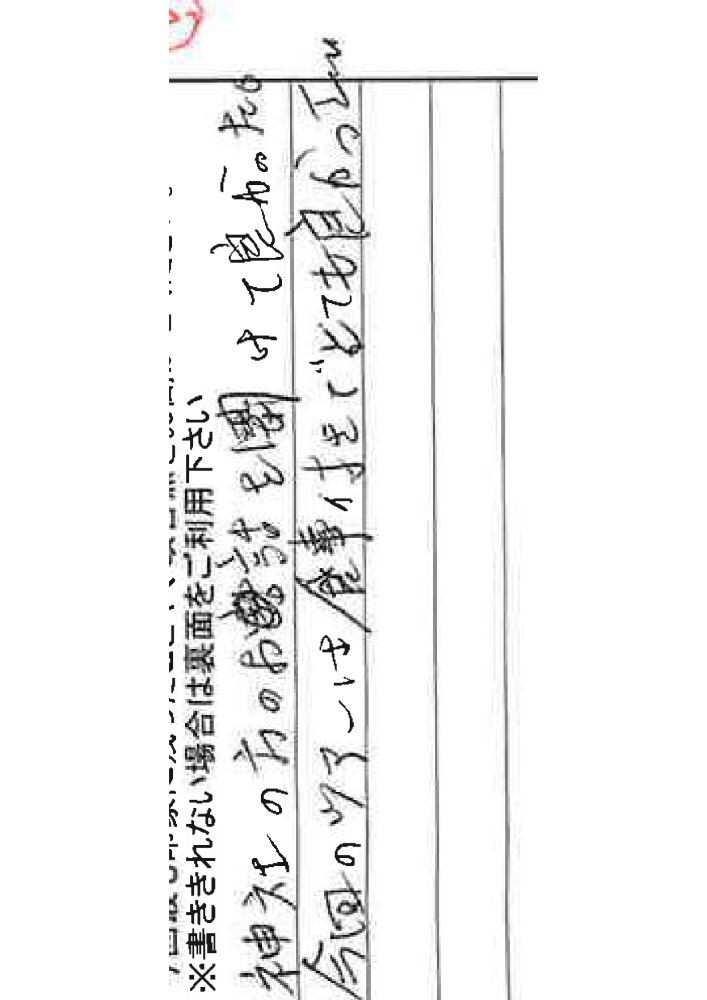 ※書ききれない場合は裏面をご利用下さい
神社の方のお話を聞けて良かった。
今回のツアーは食事付きでとても良かった